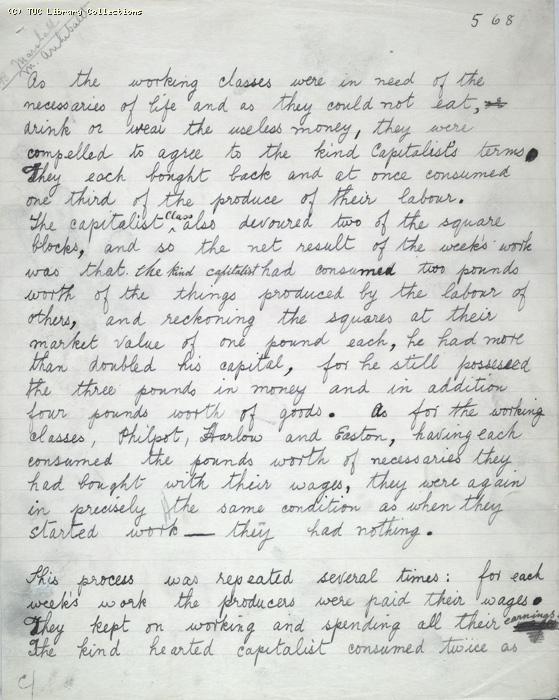 (C) TUC Library Collections
568
As the working classes were in need of the
necessaries of life and as they could not eat,
drink or wear the useless money, they were
compelled to agree to the kind Capitalist's terms.
They each bought back and at once consumed
one third of the produce of their labour.
The capitalist class also devoured two of the square
blocks, and so the net result of the week's work
was that the kind capitalist had consumed two pounds
worth of the things produced by the labour of
others, and reckoning the squares at their
market value of one pound each, he had more
than doubled his capital, for he still possessed
the three pounds in money and in addition
four pounds worth of goods. As for the working
classes, Philpot, Harlow and Easton, having each
consumed the pounds worth of necessaries they
had bought with their wages, they were again
in precisely the same condition as when they
started work — they had nothing.
This process was repeated several times: for each
week's work the producers were paid their wages.
They kept on working and spending all their earnings.
The kind hearted capitalist consumed twice as